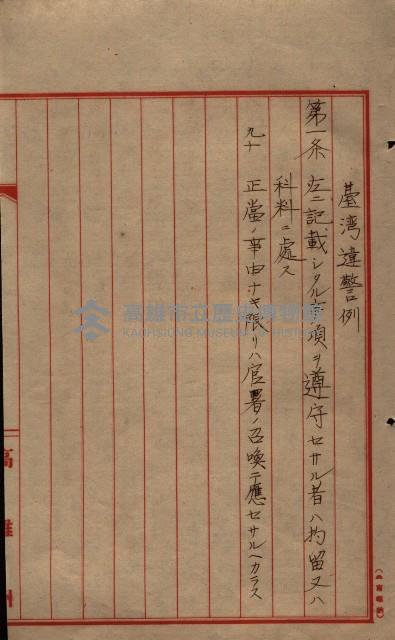 臺湾違警例
第一条 左ニ記載シタル事項ヲ遵守セサル者ハ拘留又ハ
科料ニ處ス
九十 正當ノ事由ナキ限リハ官署ノ召喚ニ應セサルヘカラス
高雄州
高雄市立歷史博物館
KAOHSIUNG MUSEUM OF HISTORY